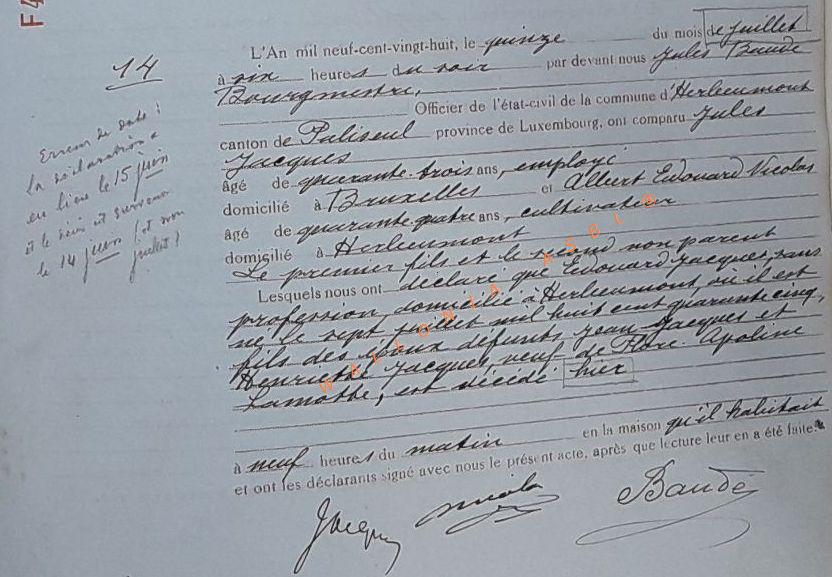 14
Erreur de date :
la déclaration a
eu lieu le 15 juin
et le décès est survenu
le 14 juin (et non
juillet)
L'An mil neuf-cent-vingt-huit, le quinze du mois de juillet
à six heures du soir par devant nous Jules Baudé
Bourgmestre,
Officier de l'état-civil de la commune d'Herbeumont
canton de Paliseul province de Luxembourg, ont comparu Jules
Jacques
âgé de quarante-trois ans, employé
domicilié à Bruxelles et Albert Edouard Nicolas
âgé de quarante-quatre ans, cultivateur
domicilié à Herbeumont
Le premier fils et le second non parent
Lesquels nous ont déclaré que Edouard Jacques, sans
profession, domicilié à Herbeumont, où il est
né le sept juillet mil huit cent quarante cinq,
fils des époux défunts Jean Jacques et
Henriette Jacques, veuf de Flore Apoline
Lamotte, est décédé hier
à neuf heures du matin en la maison qu'il habitait
et ont les déclarants signé avec nous le présent acte, après que lecture leur en a été faite.
Jacques Nicolas Baudé
WALLONIA ASBL